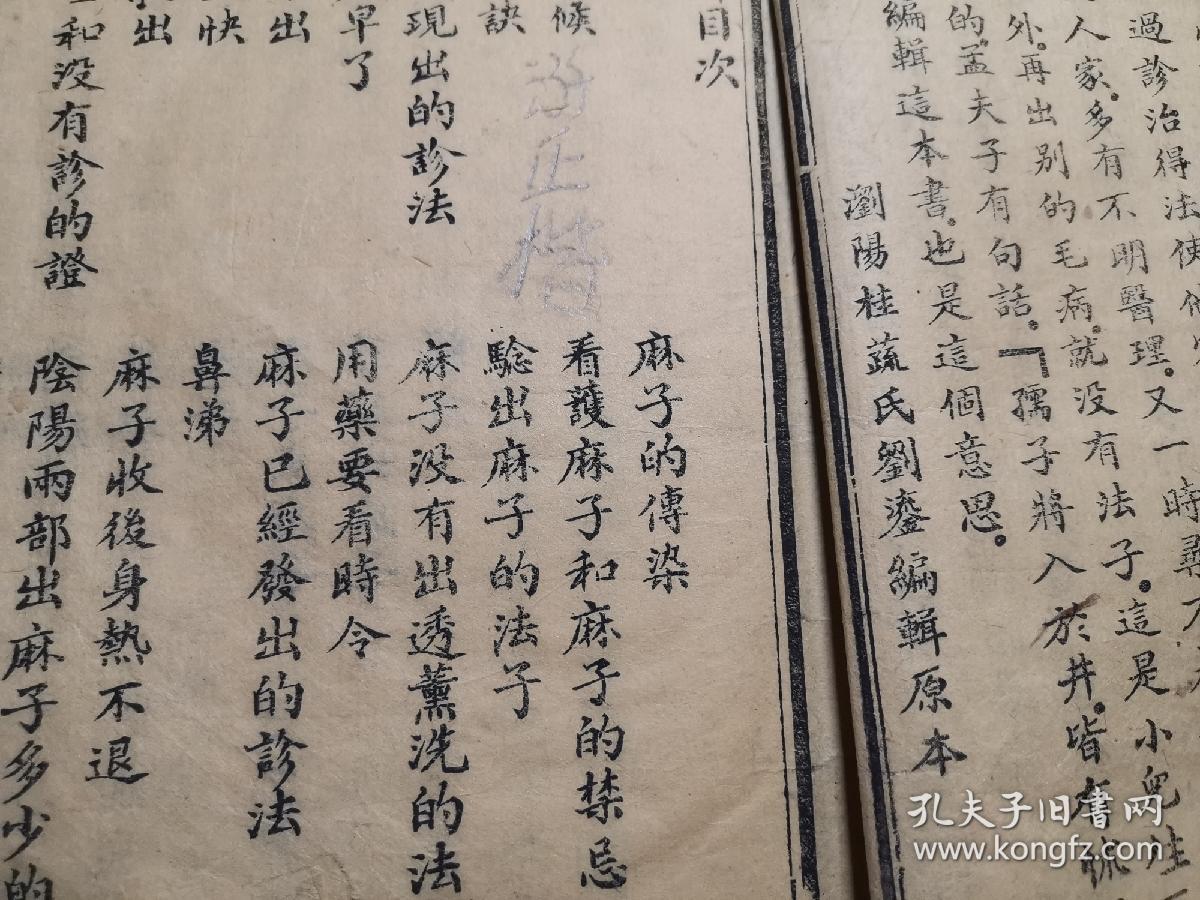 過診治得法使
人家。多有不明醫理。又一時尋
外。再出别的毛病。就没有法子。這是小兒
的。孟夫子有句話。「孺子將入於井。皆有
編輯這本書。也是這個意思。
瀏陽桂蔬氏劉鎏編輯原本
目次
麻子的傳染
候
看護麻子和麻子的禁忌
訣
驗出麻子的法子
現出的診法
麻子没有出透薰洗的法
早了
用藥要看時令
出
麻子已經發出的診法
快
鼻涕
出
麻子收後身熱不退
和没有診的證
陰陽兩部出麻子多少的
孔夫子旧書网
www.kongfz.com